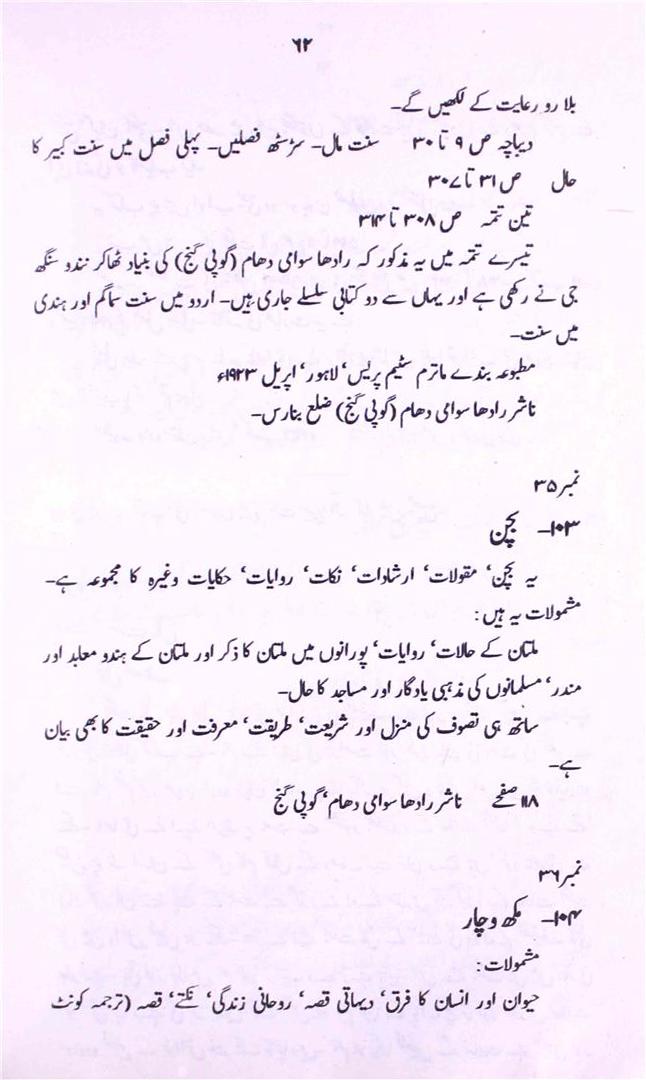 ۶۲
بلا رو رعایت کے لکھیں گے۔
دیباچہ ص ۹ تا ۳۰ سنت مال۔ سڑسٹھ فصلیں۔ پہلی فصل میں سنت کبیر کا
حال ص ۳۱ تا ۳۰۷
تین تتمہ ص ۳۰۸ تا ۳۱۴
تیسرے تتمہ میں یہ مذکور کہ رادھا سوامی دھام (گوپی گنج) کی بنیاد ٹھاکر نندو سنگھ
جی نے رکھی ہے اور یہاں سے دو کتابی سلسلے جاری ہیں۔ اردو میں سنت سماگم اور ہندی
میں سنت۔
مطبوعہ بندے ماترم سٹیم پریس‘ لاہور‘ اپریل ۱۹۲۳ء
ناشر رادھا سوامی دھام (گوپی گنج) ضلع بنارس۔
نمبر ۳۵
۱۰۳۔ بچن
یہ بچن‘ مقولات‘ ارشادات‘ نکات‘ روایات‘ حکایات وغیرہ کا مجموعہ ہے۔
مشمولات یہ ہیں:
ملتان کے حالات‘ روایات‘ پورانوں میں ملتان کا ذکر اور ملتان کے ہندو معابد اور
مندر‘ مسلمانوں کی مذہبی یادگار اور مساجد کا حال۔
ساتھ ہی تصوف کی منزل اور شریعت‘ طریقت‘ معرفت اور حقیقت کا بھی بیان
ہے۔
۱۱۸ صفحے ناشر رادھا سوامی دھام‘ گوپی گنج
نمبر ۳۶
۱۰۴۔ مکھ وچار
مشمولات:
حیوان اور انسان کا فرق‘ دیہاتی قصہ‘ روحانی زندگی‘ نکتے‘ قصہ (ترجمہ کونٹ